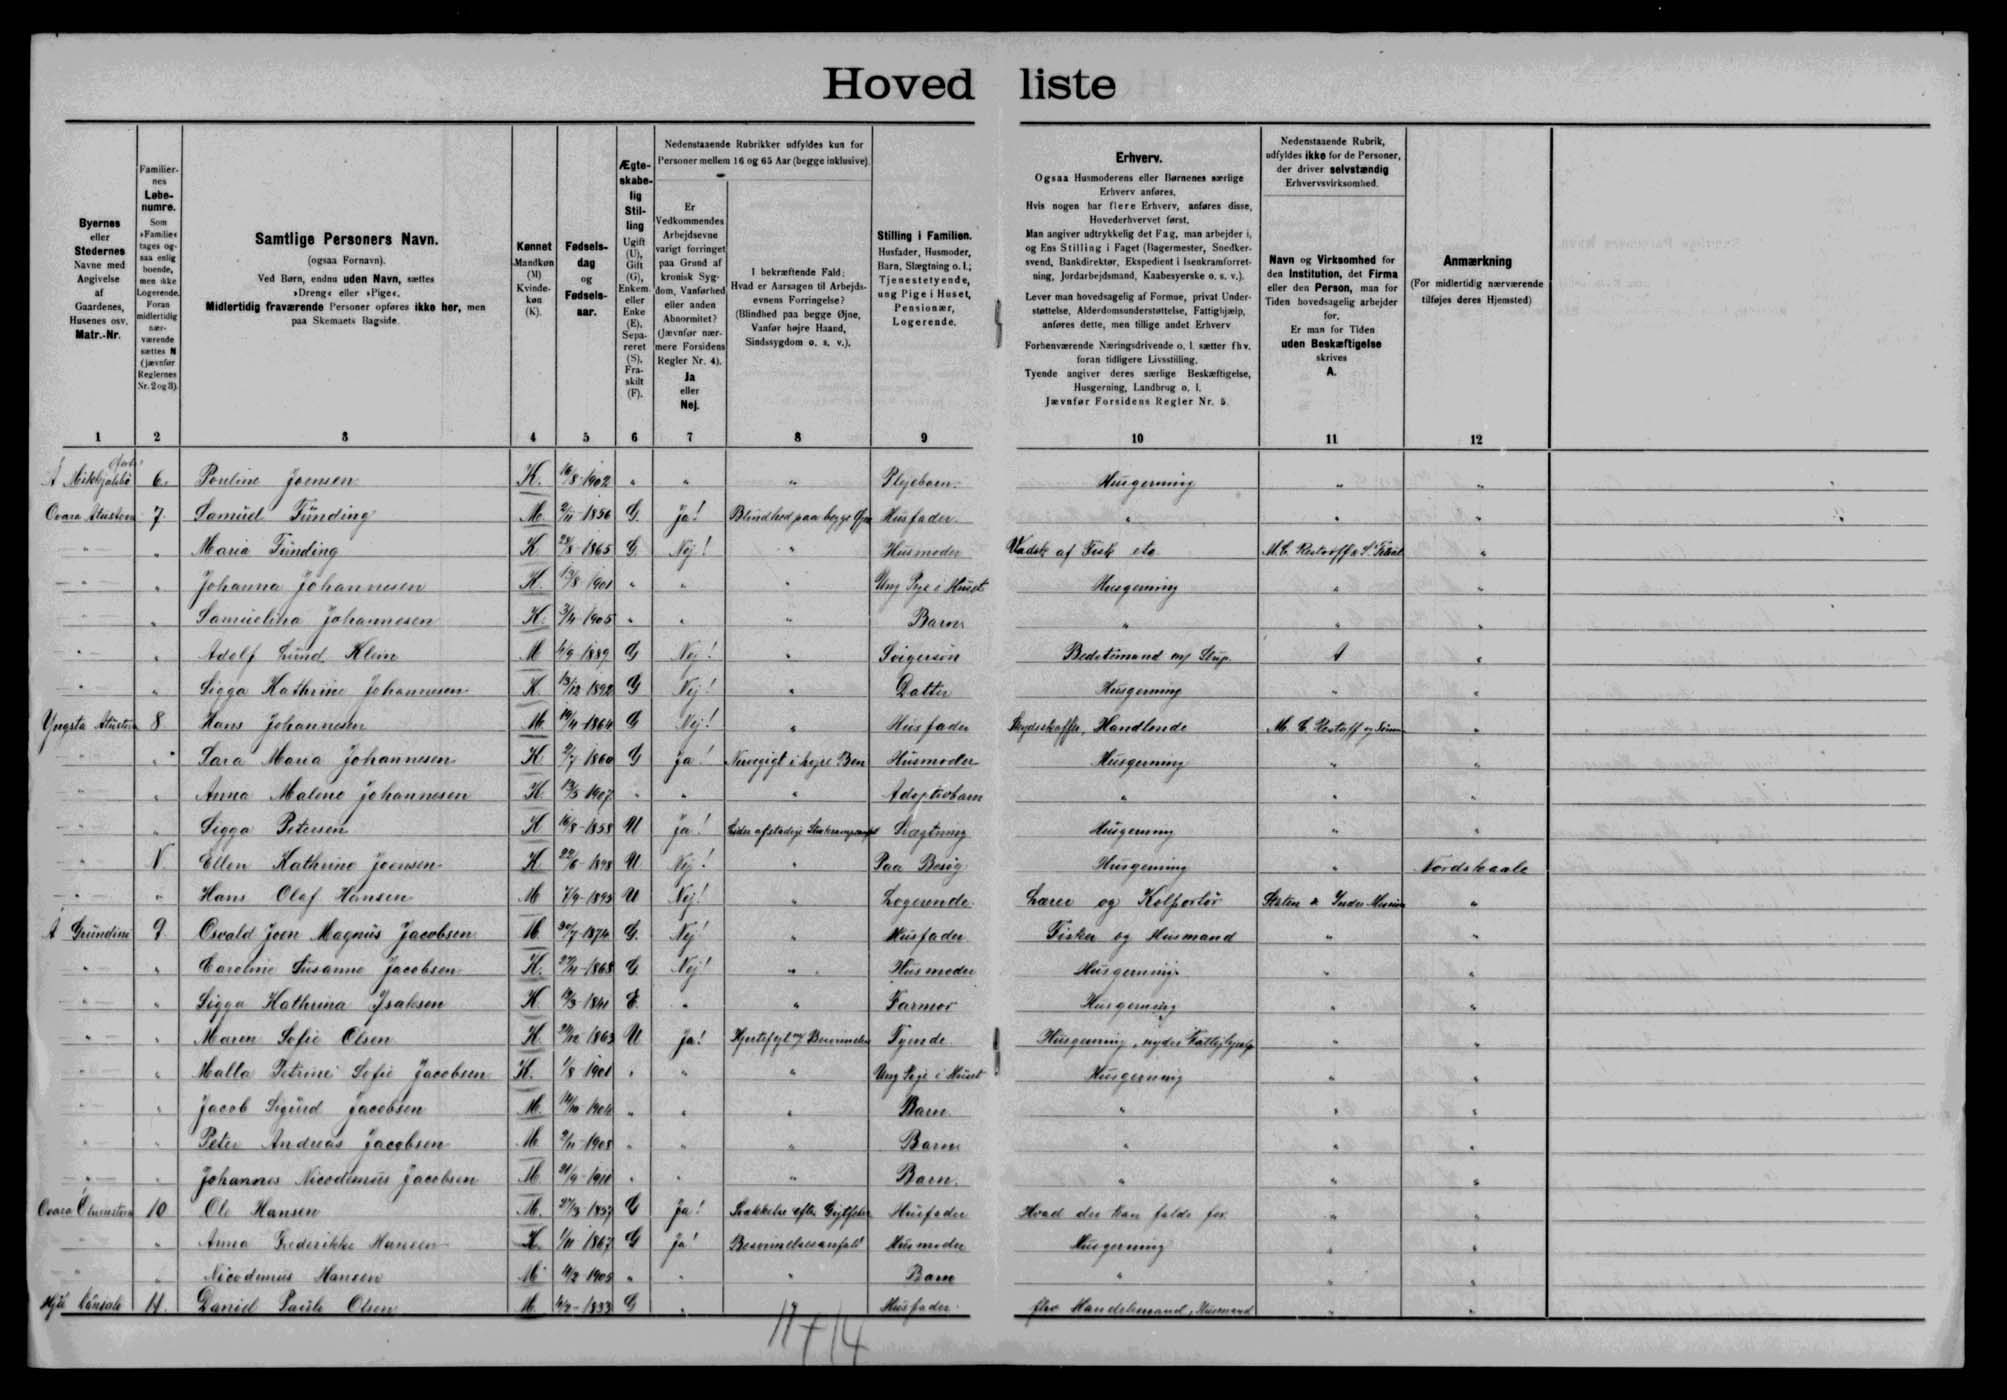 Hoved liste
Byernes
eller
Stedernes
Navne med
Angivelse
af
Gaardenes,
Husenes osv.
Matr.-Nr.
Familier-
nes
Løbe-
numre.
Som
»Familie«
tages og-
saa enlig
boende,
men ikke
Logerende.
Foran
midlertidig
nær-
værende
sættes N
(jævnfør
Reglernes
Nr. 2 og 3).
Samtlige Personers Navn.
(ogsaa Fornavn).
Ved Børn, endnu uden Navn, sættes
»Dreng« eller »Pige«.
Midlertidig fraværende Personer opføres ikke her, men
paa Skemaets Bagside.
Kønnet
Mandkøn
(M)
Kvinde-
køn
(K).
Fødsels-
dag
og
Fødsels-
aar.
Ægte-
skabe-
lig
Stil-
ling
Ugift
(U),
Gift
(G),
Enkem.
eller
Enke
(E),
Sepa-
reret
(S),
Fra-
skilt
(F).
Nedenstaaende Rubrikker udfyldes kun for
Personer mellem 16 og 65 Aar (begge inklusive).
Er
Vedkommendes
Arbejdsevne
varigt forringet
paa Grund af
kronisk Syg-
dom, Vanførhed
eller anden
Abnormitet?
(Jævnfør nær-
mere Forsidens
Regler Nr. 4).
Ja
eller
Nej.
I bekræftende Fald:
Hvad er Aarsagen til Arbejds-
evnens Forringelse?
(Blindhed paa begge Øjne,
Vanfør højre Haand,
Sindssygdom o. s. v.).
Stilling i Familien.
Husfader, Husmoder,
Barn, Slægtning o. l.;
Tjenestetyende,
ung Pige i Huset,
Pensionær,
Logerende.
Erhverv.
Ogsaa Husmoderens eller Børnenes særlige
Erhverv anføres.
Hvis nogen har flere Erhverv, anføres disse,
Hovederhvervet først.
Man angiver udtrykkelig det Fag, man arbejder i,
og Ens Stilling i Faget (Bagermester, Snedker-
svend, Bankdirektør, Ekspedient i Isenkramforret-
ning, Jordarbejdsmand, Kaabesyerske o. s. v.).
Lever man hovedsagelig af Formue, privat Under-
støttelse, Alderdomsunderstøttelse, Fattighjælp,
anføres dette, men tillige andet Erhverv
Forhenværende Næringsdrivende o. l. sætter fhv.
foran tidligere Livsstilling.
Tyende angiver deres særlige Beskæftigelse,
Husgerning, Landbrug o. l.
Jævnfør Forsidens Regler Nr. 5.
Nedenstaaende Rubrik,
udfyldes ikke for de Personer,
der driver selvstændig
Erhvervsvirksomhed.
Navn og Virksomhed for
den Institution, det Firma
eller den Person, man for
Tiden hovedsagelig arbejder
for.
Er man for Tiden
uden Beskæftigelse
skrives
A.
Anmærkning
(For midlertidig nærværende
tilføjes deres Hjemsted)
1 2 3 4 5 6 7 8 9 10 11 12
6. Pouline Joensen K. 16/8-1902 " " " Plejebarn. Husgerning " "
7. Samuel Funding M. 2/11-1856 G. Ja! Blindhed paa begge Øjne Husfader. " " "
" " Maria Funding K 28/8-1865 G Nej! " Husmoder Vadsk af Fisk etc "
" " Johanna Johannesen K. 13/8-1901 " " " Ung Pige i Huset Husgerning " "
" " Samuelina Johannesen K. 3/4-1905 " " " Barn. " " "
" " Adolf Lund Klein M 4/9-1889 G Nej! " Svigersøn A "
" " Sigga Kathrine Johannesen K. 13/12-1892 G Nej! " Datter Husgerning " "
Yngsta 8 Hans Johannesen M. 19/4-1864 G Nej! " Husfader Handlende "
" " Sara Maria Johannesen K. 2/7-1860 G Ja! i højre Ben Husmoder Husgerning " "
" " Anna Malene Johannesen K. 13/3-1907 " " " Adoptivbarn " " "
" " Sigga Petersen K 16/8-1858 U Ja! Slægtning Husgerning " "
" N. Ellen Kathrine Joensen K 22/6-1898 U Nej! " Paa Besøg Husgerning " Nordskaale
" " Hans Olaf Hansen M 7/9-1895 U Nej! " Logerende. Lærer og Kolportør Staten & Indre Mission "
Á Grundini 9. Osvald Joen Magnus Jacobsen M. 20/7-1874 G. Nej! " Husfader Fisker og Husmand " "
" " Caroline Susanne Jacobsen K. 27/11-1868 G Nej! " Husmoder Husgerning " "
" " Sigga Kathrina Isaksen K 19/3-1841 E. " " Farmor Husgerning " "
" " Maren Sofie Olsen K. 24/12-1863 U Ja! Hjertefejl og Tyende. Husgerning, nyder Fattighjælp " "
" " Malla Petrine Sofie Jacobsen K. 1/8-1901 " " " Ung Pige i Huset Husgerning " "
" " Jacob Sigurd Jacobsen M. 14/10-1904 " " " Barn. " " "
" " Peter Andreas Jacobsen M 2/11-1908 " " " Barn " " "
" " Johannes Nicodemus Jacobsen M 21/9-1911 " " " Barn. " " "
10 Ole Hansen M. 27/3-1857 G Ja! Svakkelse efter Gigtfeber Husfader Hvad der kan falde for " "
" " Anna Frederikke Hansen K. 1/11-1867 G Ja! Besvimelsesanfald Husmoder Husgerning " "
" " Nicodemus Hansen M 4/2-1905 " " " Barn " " "
11. Daniel Pauli Olsen M. 4/2-1833 G " Husfader. fhv Handelsmand, Husmand " "
11+14